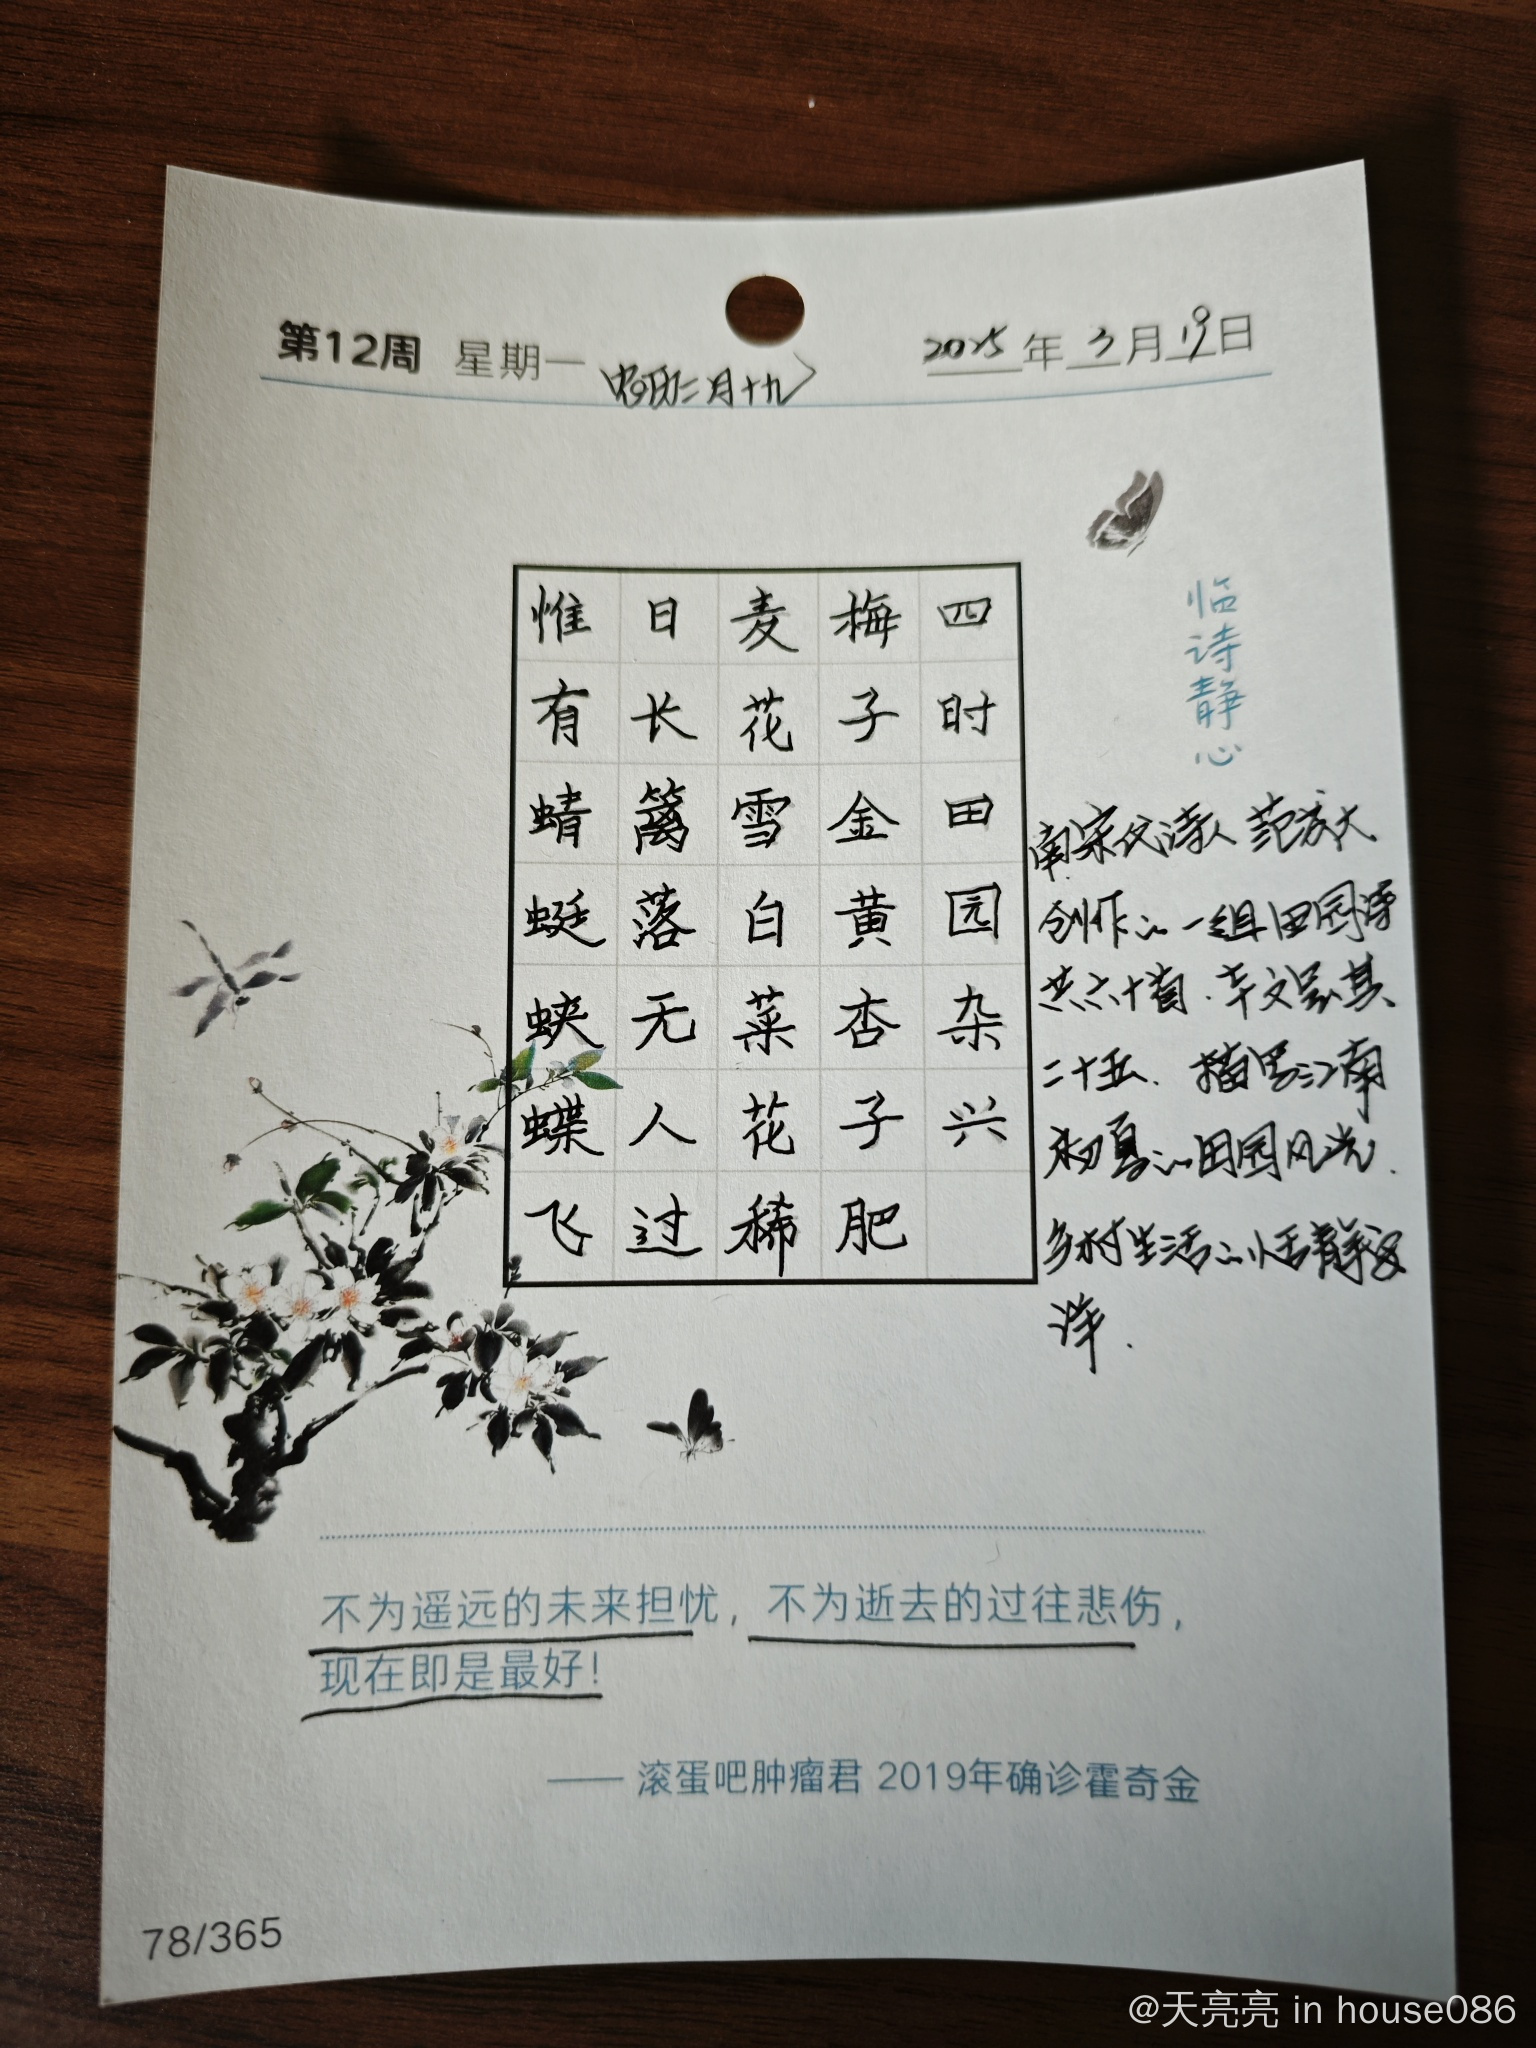 第12周 星期一 (农历二月十九) 2025年3月19日
临诗静心
四时田园杂兴
梅子金黄杏子肥
麦花雪白菜花稀
日长篱落无人过
惟有蜻蜓蛱蝶飞
南宋代诗人范成大
创作的一组田园诗
共六十首.本文是其
二十五.描写江南
初夏的田园风光.
乡村生活的恬静安
详.
不为遥远的未来担忧,不为逝去的过往悲伤,
现在即是最好!
—— 滚蛋吧肿瘤君 2019年确诊霍奇金
78/365
@天亮亮 in house086